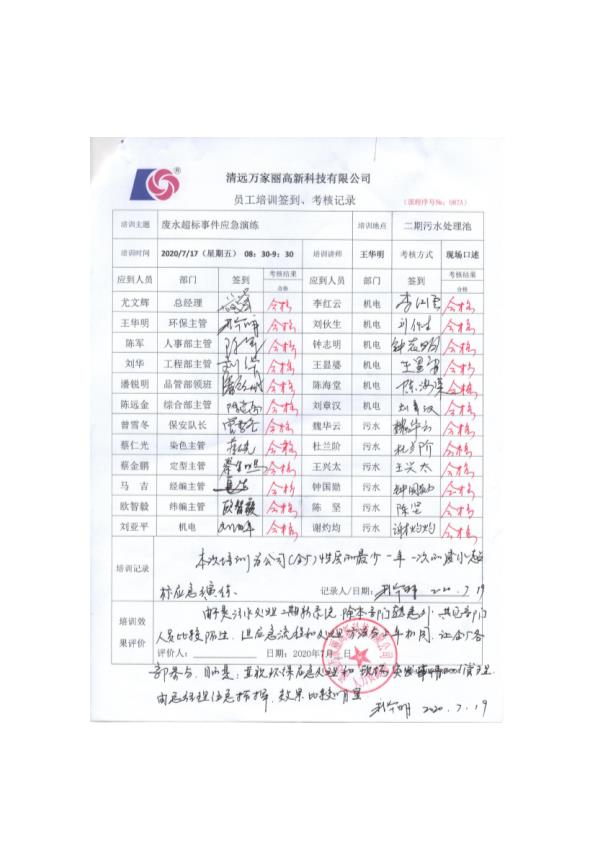 ®
清远万家丽高新科技有限公司
员工培训签到、考核记录
(流程序号№: 087A)
培训主题 废水超标事件应急演练 培训地点 二期污水处理池
培训时间 2020/7/17（星期五） 08：30-9：30 培训讲师 王华明 考核方式 现场口述
应到人员 部门 签到 考核结果 应到人员 部门 签到 考核结果
合格 合格
尤文辉 总经理 合格 李红云 机电 李红云 合格
王华明 环保主管 合格 刘伙生 机电 刘伙生 合格
陈军 人事部主管 陈军 合格 钟志明 机电 钟志明 合格
刘华 工程部主管 刘华 合格 王显婆 机电 合格
潘锐明 品管部领班 潘锐明 合格 陈海堂 机电 陈海棠 合格
陈远金 综合部主管 合格 刘章汉 机电 刘章汉 合格
曾雪冬 保安队长 曾雪冬 合格 魏华云 污水 魏华云 合格
蔡仁光 染色主管 合格 杜兰阶 污水 杜兰阶 合格
蔡金鹏 定型主管 合格 王兴太 污水 王兴太 合格
马 吉 经编主管 合格 钟国勋 污水 钟国勋 合格
欧智毅 纬编主管 欧智毅 合格 陈 坚 污水 陈坚 合格
刘亚平 机电 合格 谢灼均 污水 谢灼均 合格
培训记录
本次培训为公司 性质的最少一年一次的废水超
标应急演练.
记录人/日期: 2020.7.19
培训效果评价
二期新系统, 除本部门 其它部门
人员比较陌生, 但应急流程和处理方法与 年相同, 让全厂各
评价人： 日期：2020年7月 日
部 目的是: 环保应急处理和
由总经理 指挥, 效果比较明显
2020.7.19